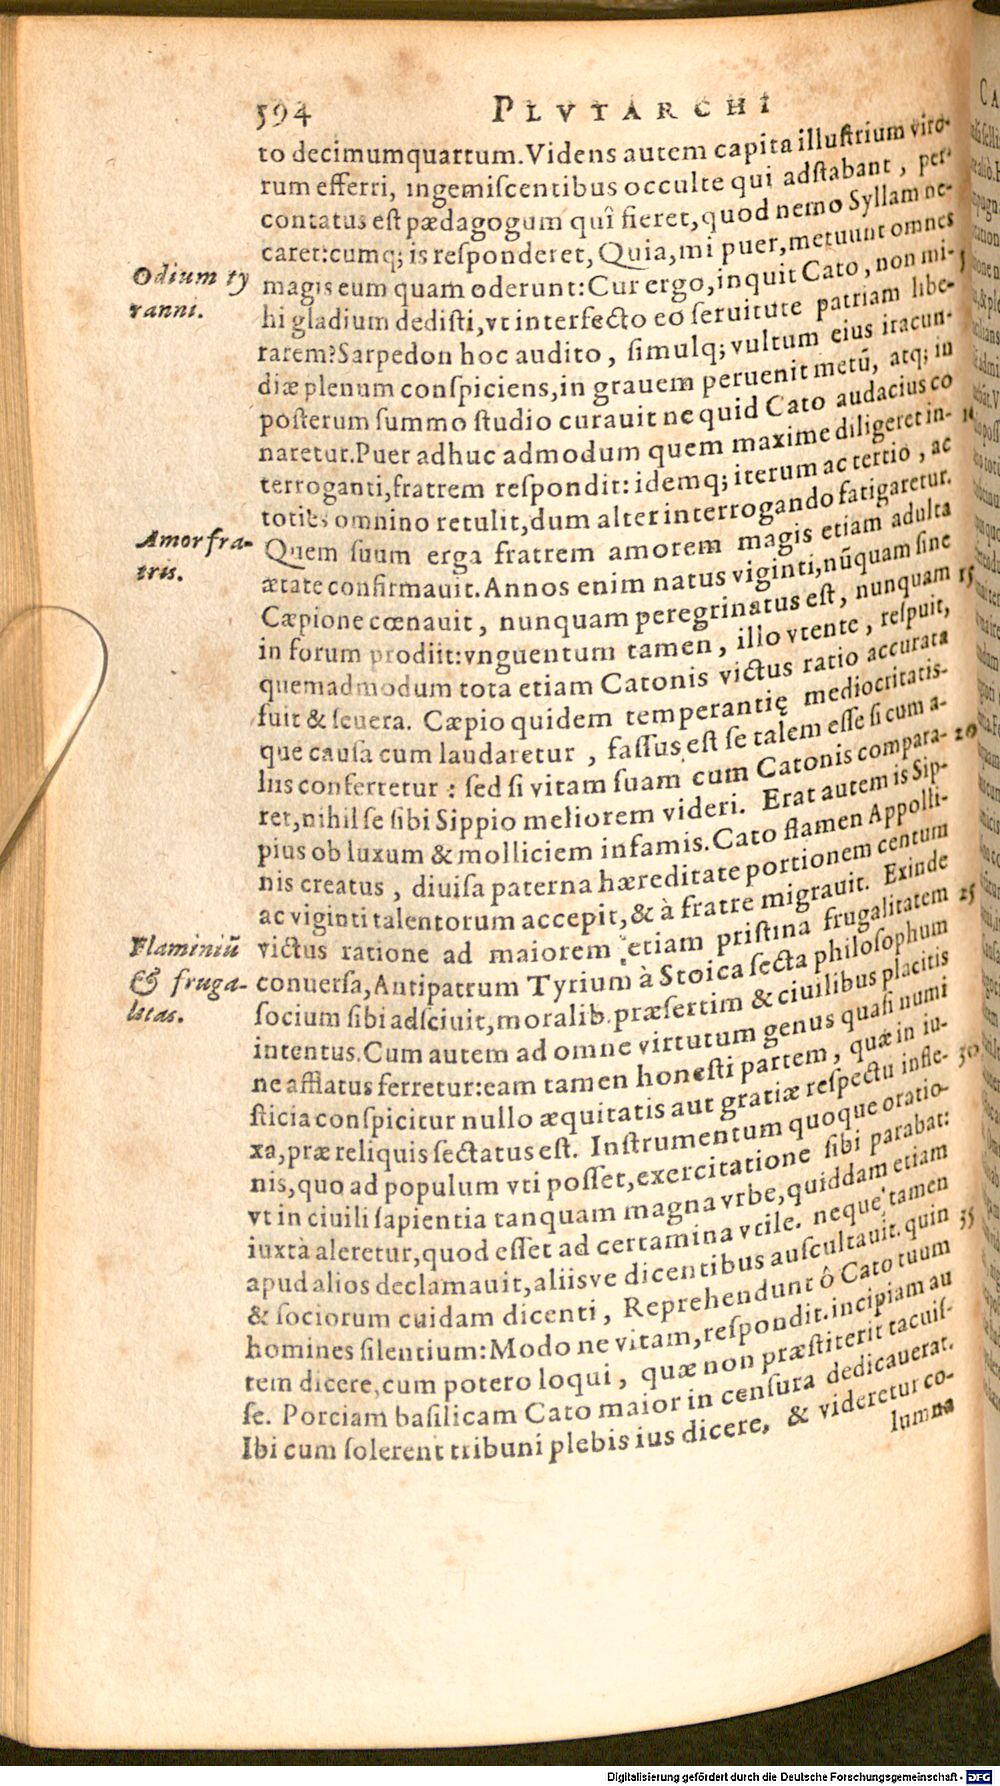 594 PLVTARCHI
to decimumquartum. Videns autem capita illuſtrium viro-
rum efferri, ingemiſcentibus occulte qui adſtabant, per-
contatus eſt pædagogum quî fieret, quod nemo Syllam ne-
caret: cumq; is reſponderet, Quia, mi puer, metuunt omnes
Odium ty
magis eum quam oderunt: Cur ergo, inquit Cato, non mi- 5
ranni.
hi gladium dediſti, vt interfecto eo ſeruitute patriam libe-
rarem? Sarpedon hoc audito, ſimulq; vultum eius iracun-
diæ plenum conſpiciens, in grauem peruenit metū, atq; in
poſterum ſummo ſtudio curauit ne quid Cato audacius co
naretur. Puer adhuc admodum quem maxime diligeret in- 10
terroganti, fratrem reſpondit: idemq; iterum ac tertio, ac
toties omnino retulit, dum alter interrogando fatigaretur.
Amor fra-
Quem ſuum erga fratrem amorem magis etiam adulta
tris.
ætate confirmauit. Annos enim natus viginti, nūquam ſine
Cæpione cœnauit, nunquam peregrinatus eſt, nunquam 15
in forum prodiit: vnguentum tamen, illo vtente, reſpuit,
quemadmodum tota etiam Catonis victus ratio accurata
fuit & ſeuera. Cæpio quidem temperantię mediocritatis-
que cauſa cum laudaretur, faſſus eſt ſe talem eſſe ſi cum a-
liis conferretur: ſed ſi vitam ſuam cum Catonis compara- 20
ret, nihil ſe ſibi Sippio meliorem videri. Erat autem is Sip-
pius ob luxum & molliciem infamis. Cato flamen Appolli-
nis creatus, diuiſa paterna hæreditate portionem centum
ac viginti talentorum accepit, & à fratre migrauit. Exinde
Flaminiū
victus ratione ad maiorem etiam priſtina frugalitatem 25
& fruga-
conuerſa, Antipatrum Tyrium à Stoica ſecta philoſophum
litas.
ſocium ſibi adſciuit, moralib. præſertim & ciuilibus placitis
intentus. Cum autem ad omne virtutum genus quaſi numi
ne afflatus ferretur: eam tamen honeſti partem, quæ in iu-
ſticia conſpicitur nullo æquitatis aut gratiæ reſpectu infle- 30
xa, præ reliquis ſectatus eſt. Inſtrumentum quoque oratio-
nis, quo ad populum vti poſſet, exercitatione ſibi parabat:
vt in ciuili ſapientia tanquam magna vrbe, quiddam etiam
iuxtà aleretur, quod eſſet ad certamina vtile. neque tamen
apud alios declamauit, aliisve dicentibus auſcultauit. quin 35
& ſociorum cuidam dicenti, Reprehendunt ô Cato tuum
homines ſilentium: Modo ne vitam, reſpondit. incipiam au
tem dicere, cum potero loqui, quæ non præſtiterit tacuiſ-
ſe. Porciam baſilicam Cato maior in cenſura dedicauerat.
Ibi cum ſolerent tribuni plebis ius dicere, & videretur co-
lumna
Digitalisierung gefördert durch die Deutsche Forschungsgemeinschaft - DFG